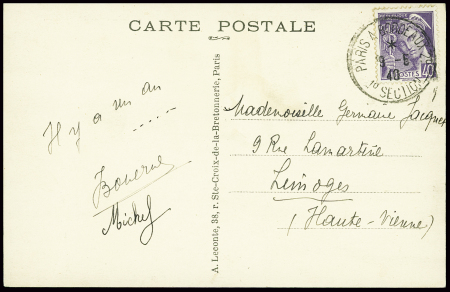 CARTE POSTALE
PARIS A BORDEAUX
6
40
1e SECTION
POSTES
40
Il y a un an
.....
Michel
A. Leconte, 38, r. Ste-Croix-de-la-Bretonnerie, Paris
Mademoiselle Germane Jacquet
9 Rue Lamartine
Limoges
(Haute-Vienne)